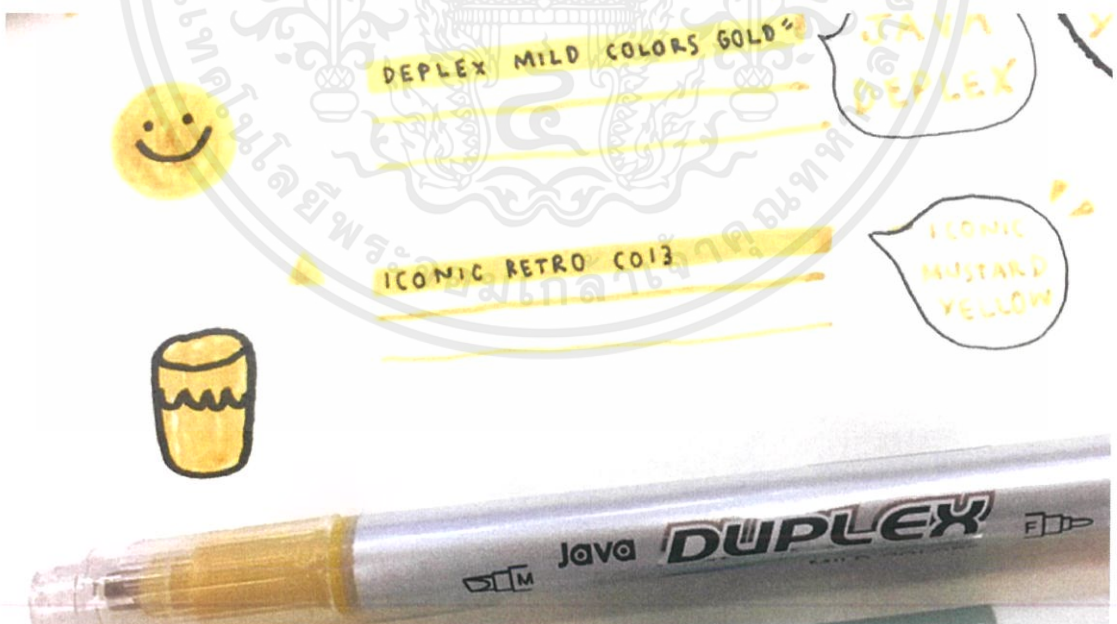 DEPLEX MILD COLORS GOLD"
JAVA
DEPLEX
ICONIC RETRO C013
ICONIC
MUSTARD
YELLOW
M Java DUPLEX F